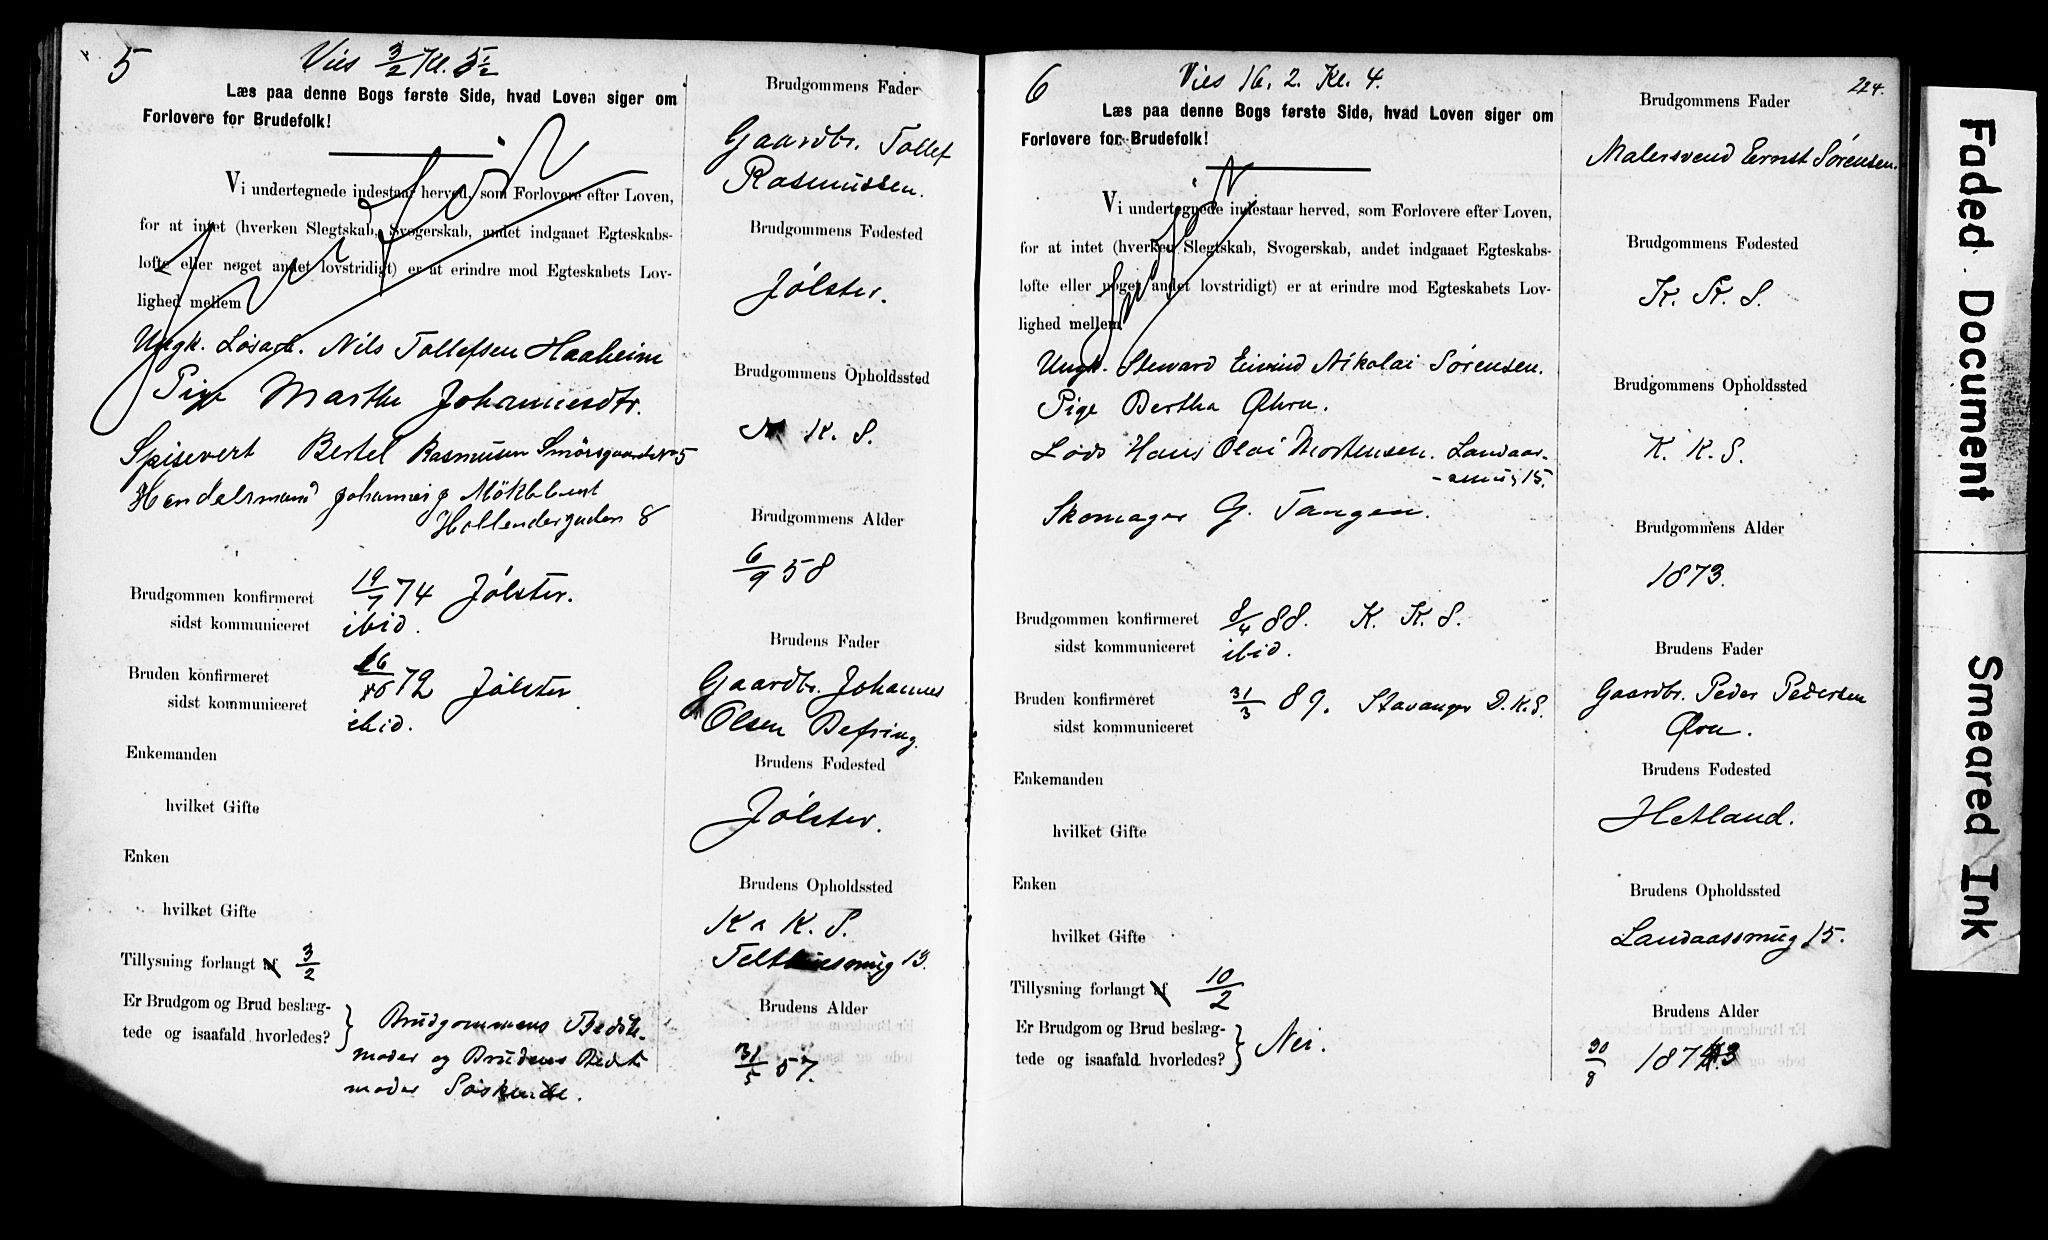 5
Vies 3/2 Kl. 5 1/2
Læs paa denne Bogs første Side, hvad Loven siger om
Forlovere for Brudefolk!
Vi undertegnede indestaar herved, som Forlovere efter Loven,
for at intet (hverken Slegtskab, Svogerskab, andet indgaaet Egteskabs-
løfte eller noget andet lovstridigt) er at erindre mod Egteskabets Lov-
lighed mellem
Ungk. Løsarb. Nils Tollefsen Haaheim
Pige Marthe Johannesdtr.
Spisevert Bertel Rasmusen Smørsgaarden 5
Handelsmand Johannes J Möklebust
Hollendergaden 8
Brudgommen konfirmeret 19/7 74 Jølster.
sidst kommuniceret ibid.
Bruden konfirmeret 72 Jølster
sidst kommuniceret ibid.
Enkemanden
hvilket Gifte
Enken
hvilket Gifte
Tillysning forlangt af 3/2
Er Brudgom og Brud beslæg-
tede og isaafald hvorledes? } Brudgommens Bedste-
moder og Brudens Bedst
moder Søskende.
Brudgommens Fader
Gaardbr. Tollef
Rasmussen.
Brudgommens Fødested
Jølster.
Brudgommens Opholdssted
K. S.
Brudgommens Alder
6/9 58
Brudens Fader
Gaardbr. Johannes
Olsen Befring.
Brudens Fødested
Jølster.
Brudens Opholdssted
K. K. S.
13.
Brudens Alder
31/5 57.
6
Vies 16. 2. Kl. 4.
224.
Læs paa denne Bogs første Side, hvad Loven siger om
Forlovere for Brudefolk!
Vi undertegnede indestaar herved, som Forlovere efter Loven,
for at intet (hverken Slegtskab, Svogerskab, andet indgaaet Egteskabs-
løfte eller noget andet lovstridigt) er at erindre mod Egteskabets Lov-
lighed mellem
Ungk. Steward Eivind Nikolai Sørensen.
Pige Bertha Øhrn.
Lods Hans Olai Mortensen. Landaas-
-smug 15.
Skomager G. Tangen.
Brudgommen konfirmeret 8/4 88. K. K. S.
sidst kommuniceret ibid.
Bruden konfirmeret 31/3 89. Stavanger D. K. S.
sidst kommuniceret
Enkemanden
hvilket Gifte
Enken
hvilket Gifte
Tillysning forlangt af 10/2
Er Brudgom og Brud beslæg-
tede og isaafald hvorledes? } Nei.
Brudgommens Fader
Malersvend Ernst Sørensen.
Brudgommens Fødested
K. K. S.
Brudgommens Opholdssted
K. K. S.
Brudgommens Alder
1873.
Brudens Fader
Gaardbr. Peder Pedersen
Øvrn.
Brudens Fødested
Hetland.
Brudens Opholdssted
Landaassmug 15.
Brudens Alder
30/8 1873
Faded Document
Smeared Ink